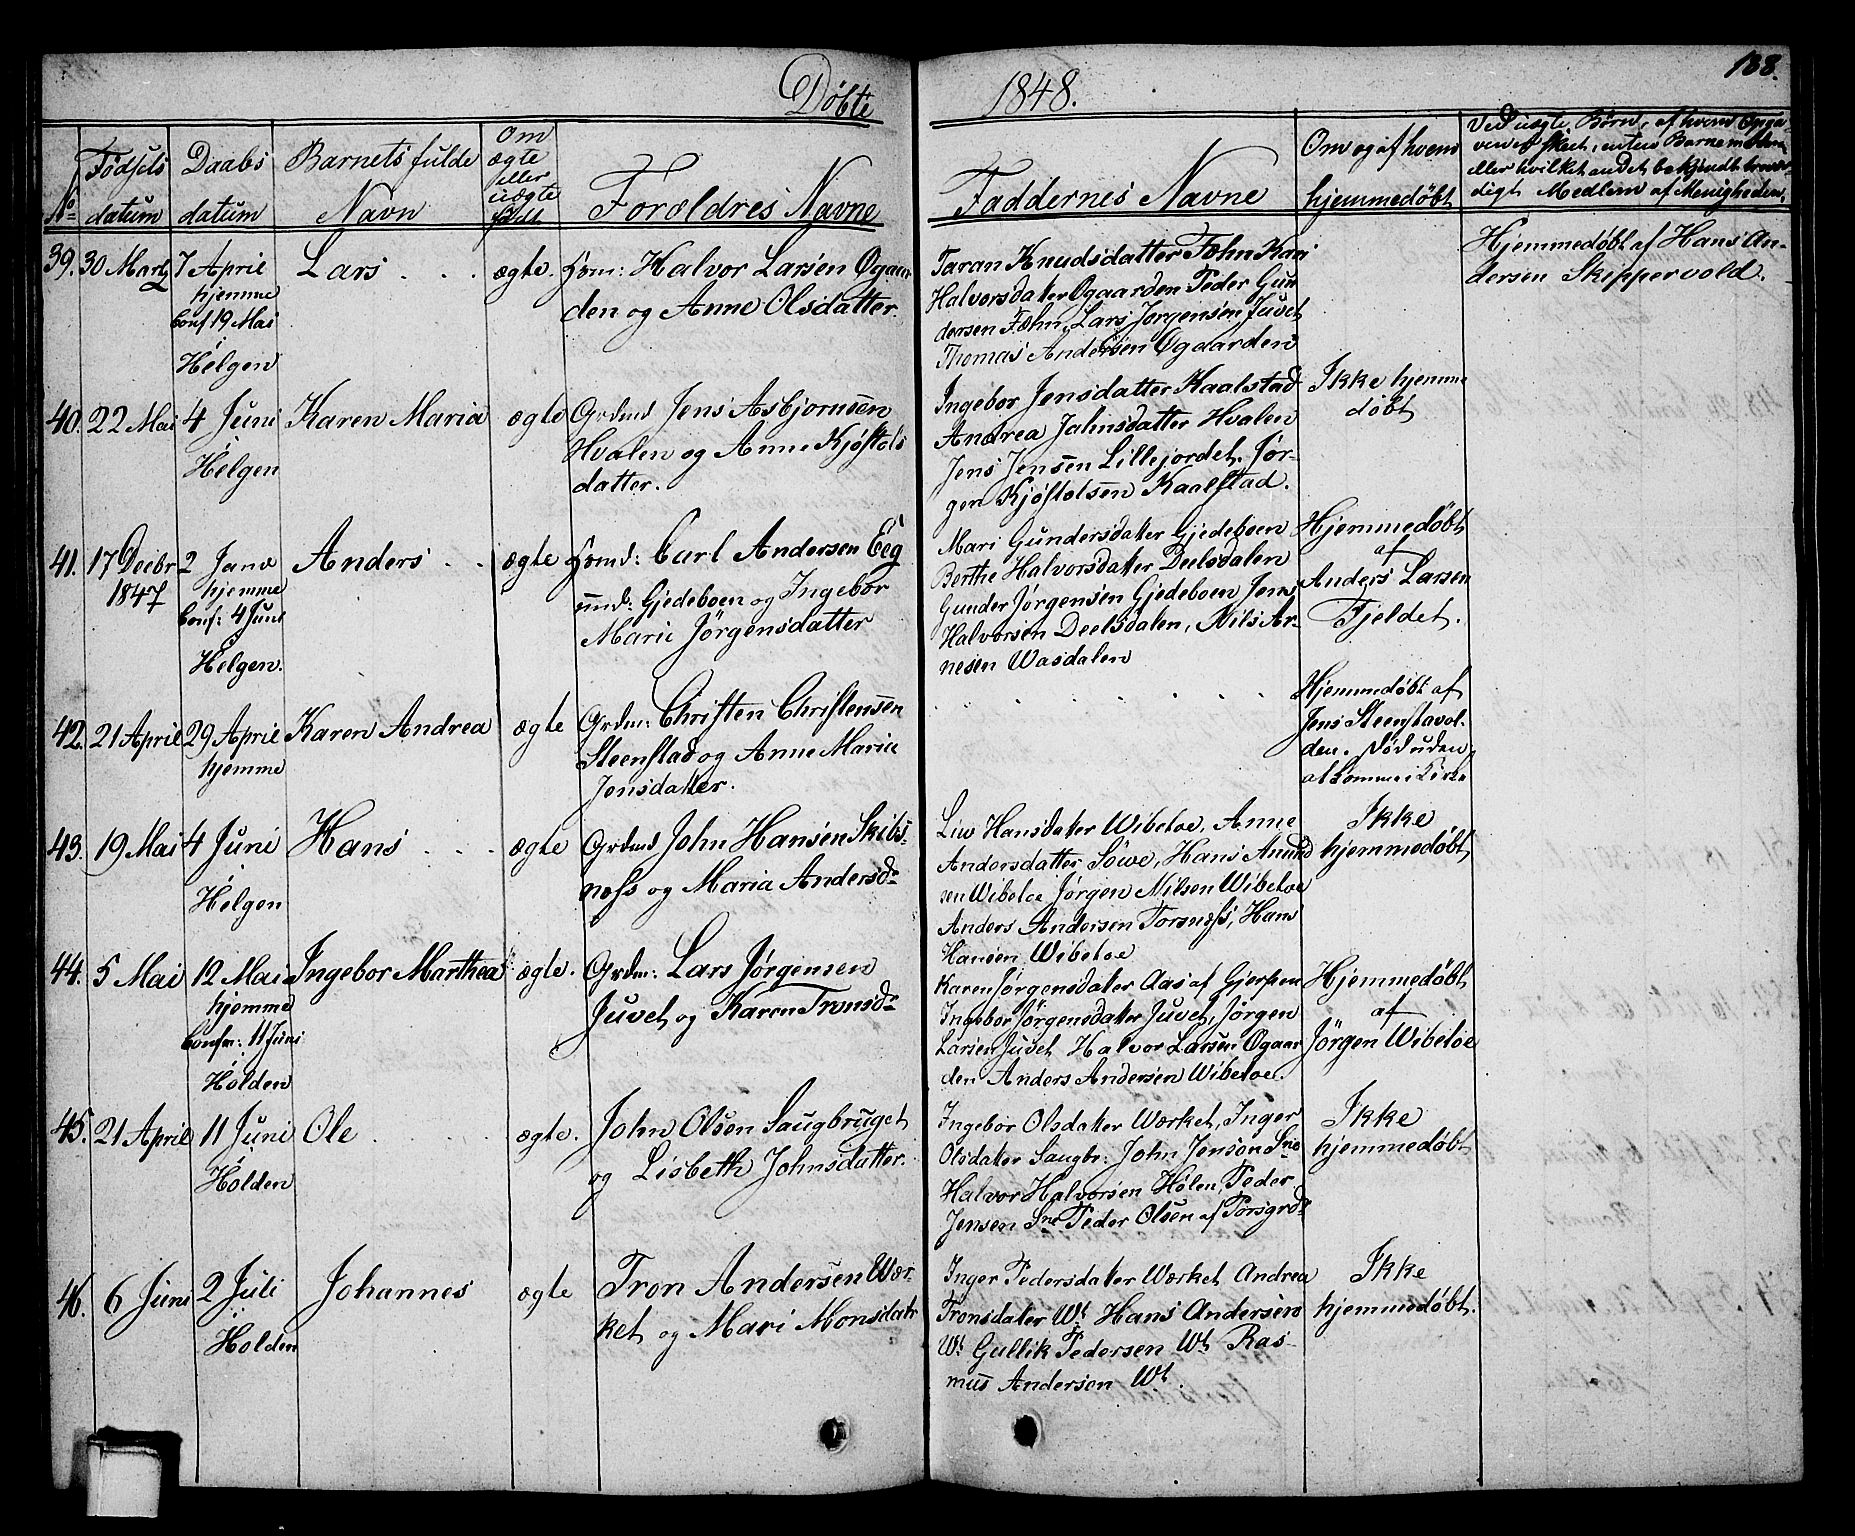 Døbte 1848.
188.
No
Fødsels datum
Daabs datum
Barnets fulde Navn
Om ægte eller uægte født
Forældres Navne
Faddernes Navne
Om og af hvem hjemmedøbt
Ved uægte Børn, af hvem Opga-
ven er skeet, enten Barnemoderen
eller hvilket andet bekjendt trovær-
digt Medlem af Menigheden.
39. 30 Marts
7 April
hjemme
Conf 19 Mai
Helgen
Lars
ægte.
Huusm: Halvor Larsen Øgaar-
den og Anne Olsdatter.
Taran Knudsdatter Fæhn Kari
Halvorsdatter Øgaarden Peder Gun
dersen Fæhn, Lars Jørgensen Juvet
Thomas Andersen Øgaarden
Hjemmedøbt af Hans An-
dersen Skeppervold.
40. 22 Mai
4 Juni
Helgen
Karen Maria
ægte
Grdmd Jens Asbjørnsen
Hvalen og Anne Kjøstols
datter.
Ingebor Jensdatter Kaalstad
Andrea Jahnsdatter Hvalen
Jens Jensen Lillejordet. Jør-
gen Kjøstolsen Kaalstad.
Ikke hjemme
døbt
41. 17 Decbr
1847
2 Janr
hjemme
Conf: 4 Juni
Helgen.
Anders
ægte
Huusmd: Carl Andersen Eeg
und: Gjedeboen og Ingebor
Marie Jörgensdatter
Mari Gundersdatter Gjedeboen
Berthe Halvorsdatter Deelsdalen
Gunder Jørgensen Gjedeboen Jens
Halvorsen Deelsdalen, Nils Ar-
nesen Wasdalen
Hjemmedøbt
af
Anders Larsen
Fjeldet.
42. 21 April
29 April
hjemme
Karen Andrea
ægte
Grdm: Christen Christensen
Steenstad og Anne Maria
Jensdatter.
Hjemmedøbt af
Jens Steenstavol-
den. Död uden
at komme i Kirke
43. 19 Mai
4 Juni
Helgen
Hans
ægte
Grdmd John Hansen Skibs-
næss og Maria Andersdr
Liw Hansdatter Wibetoe, Anne
Andersdatter Söwe, Hans Amund
sen Wibetoe Jørgen Nilsen Wibetoe
Anders Andersen Torsnæss, Hans
Hansen Wibetoe
Ikke
hjemmedøbt
44. 5 Mai
12 Mai
hjemme
Confm: 11 Juni
Holden
Ingebor Marthea
ægte.
Grdm: Lars Jørgensen
Juvet og Karen Tronsdr
Karen Jørgensdatter Aas af Gjerpen
Ingebor Jørgensdatter Juvet, Jørgen
Larsen Juvet Halvor Larsen Øgaar
den Anders Andersen Wibetoe.
Hjemmedøbt
af
Jörgen Wibetoe
45. 21 April
11 Juni
Holden
Ole
ægte.
John Olsen Saugbruget
og Lisbeth Johnsdatter.
Ingebor Olsdatter Værket, Inger
Olsdatter Saugbr: John Jenson Sne
Halvor Halvorsen Holen, Peder
Jensen Sne Peder Olsen af Porsgrd
Ikke
hjemmedøbt
46. 6 Juni
2 Juli
Holden
Johannes
ægte
Tron Andersen Vær-
ket og Mari Monsdatr
Inger Pedersdatter Værket Andrea
Tronsdatter Wt Hans Andersen
Wt Gullik Pedersen Wt Ras-
mus Andersen Wt.
Ikke
hjemmedøbt.